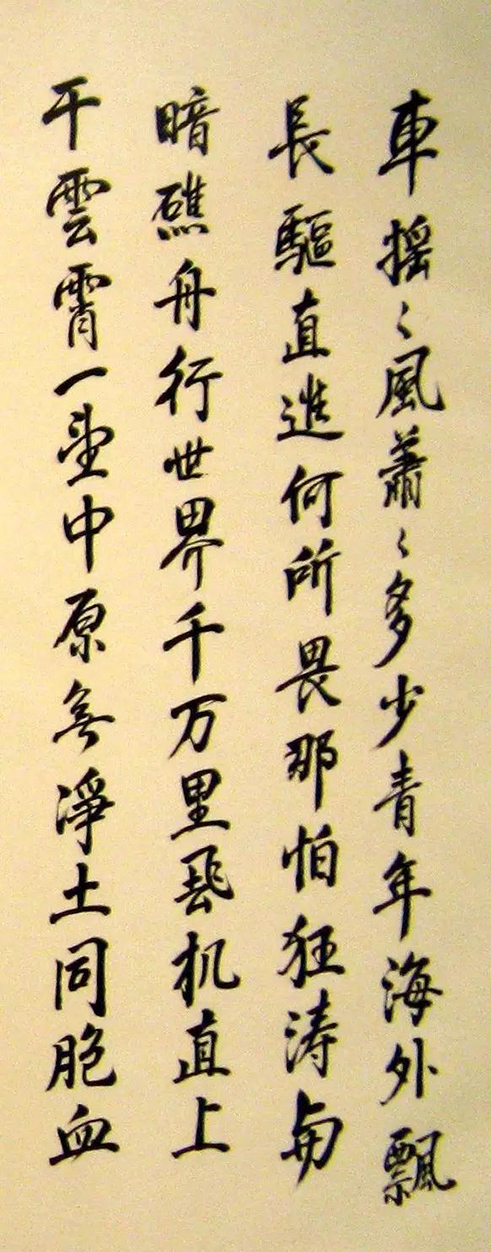 車摇〻風蕭〻多少青年海外飄
長驅直進何所畏那怕狂涛與
暗礁舟行世界千万里飛机直上
干雲霄一望中原無淨土同胞血